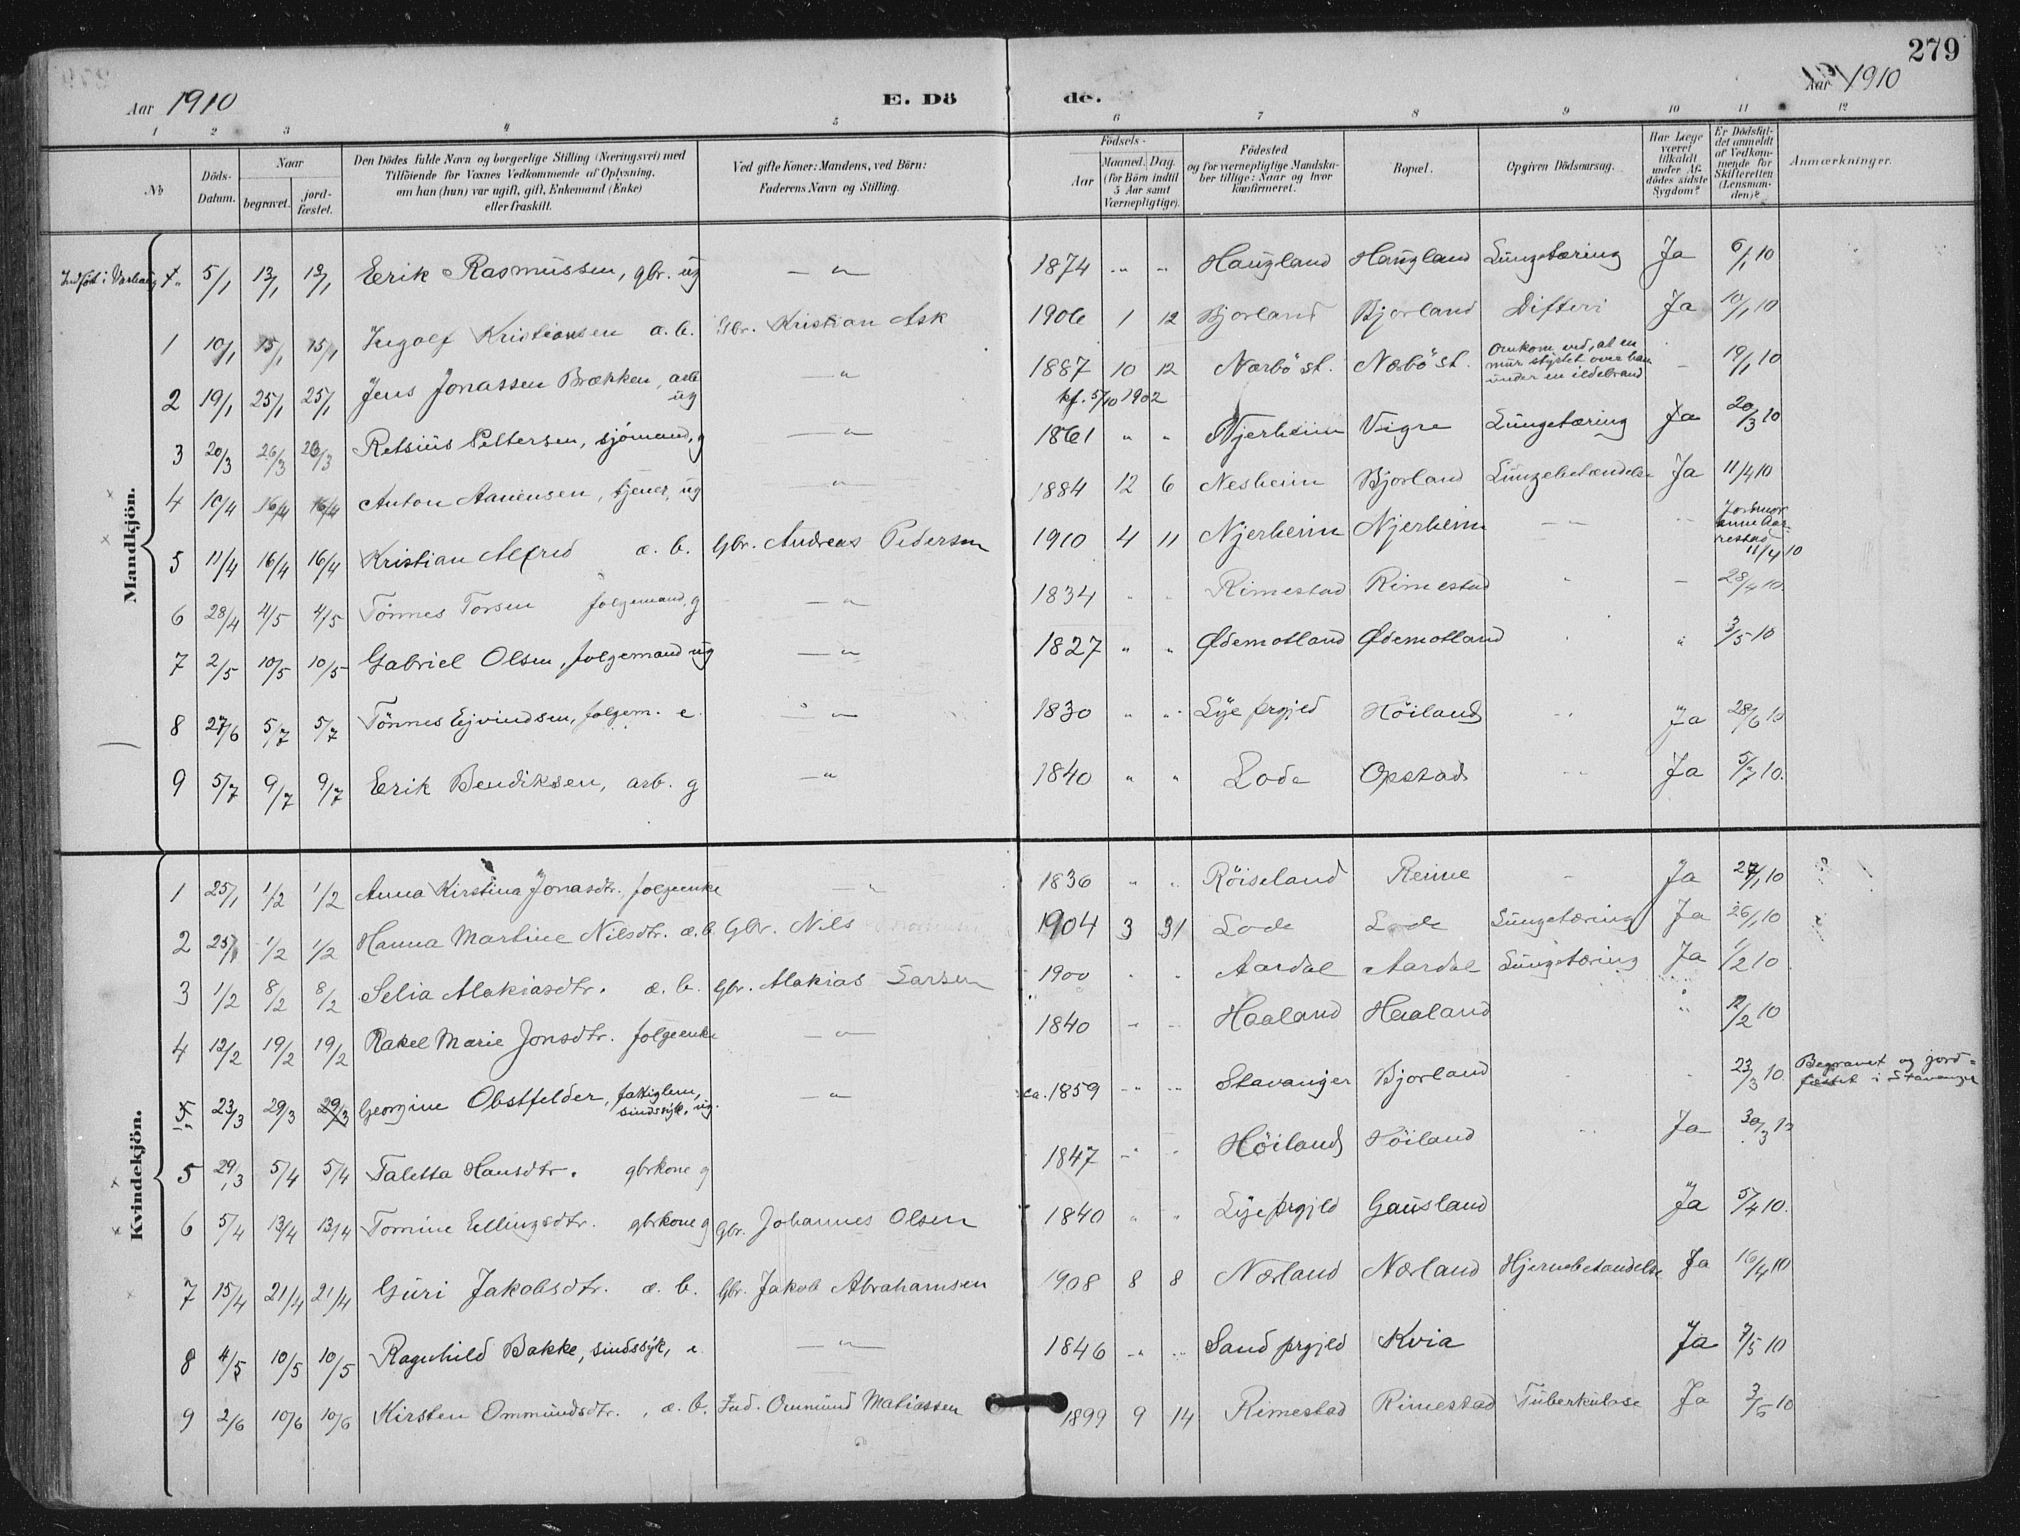 279
Aar 1910
E. Dö
de.
Aar 1910
1 2 3 4 5 6 7 8 9 10 11 12
No
Döds-Datum.
Naar
begravet.
jord-fæstet.
Den Dödes fulde Navn og borgerlige Stilling (Næringsvei) med
Tilföiende for Voxnes Vedkommende af Oplysning,
om han (hun) var ugift, gift, Enkemand (Enke)
eller fraskilt.
Ved gifte Koner: Mandens, ved Börn:
Faderens Navn og Stilling.
Födsels-
Aar
Maaned. Dag.
(for Börn indtil
5 Aar samt
Værnepligtige).
Födested
og for værnepligtige Mandskaber tillige: Naar og hvor
konfirmeret.
Bopæl.
Opgiven Dödsaarsag.
Har Læge været tilkaldt under Afdödes sidste Sygdom?
Er Dödsfaldet anmeldt af Vedkommende for Skifteretten (Lensmanden)?
Anmærkninger.
Mandkjön.
5/1 13/1 13/1 Erik Rasmussen, gbr. ug — " — 1874 " " Haugland Haugland Lungetæring Ja 6/1 10
1 10/1 15/1 15/1 Ingolf Kristiansen æ. b. Gbr. Kristian Ask 1906 1 12 Bjorland Bjorland Difteri Ja 10/1 10
2 19/1 25/1 25/1 Jens Jonassen Brækken, arb ug — " 1887 10 12 Nærbö st. Nærbö st. Omkom ved, at en
mur styrtet over ham
under en ildebrand — 19/1 10
kf. 5/10 1902
3 20/3 26/3 26/3 Retsius Pettersen, sjömand, g — " 1861 " " Njerheim Vigre Lungetæring Ja 20/3 10
4 10/4 16/4 16/4 Anton Aanensen, tjener, ug — " 1884 12 6 Nesheim Bjorland Lungebetændelse Ja 11/4 10
5 11/4 16/4 16/4 Kristian Alfred æ. b. Gbr. Andreas Pedersen 1910 4 11 Njerheim Njerheim — " Jordmor
restad
11/4 10
6 28/4 4/5 4/5 Tönnes Torsen folgemand, g — " 1834 " " Rimestad Rimestad " — 28/4 10.
7 2/5 10/5 10/5 Gabriel Olsen, folgemand ug — " 1827 " " Ødemotland Ødemotland " " 3/5 10
8 27/6 5/7 5/7 Tönnes Ejvindsen, folgem. e. — " 1830 " " Lye prgjld Höiland " Ja 28/6 10
9 5/7 9/7 9/7 Erik Bendiksen, arb. g — " 1840 " " Lode Opstad " Ja 5/7 10.
Kvindekjön.
1 25/1 1/2 1/2 Anna Kirstina Jonasdtr. folgeenke — " 1836 " " Röiseland Reime " Ja 27/1 10
2 25/1 1/2 1/2 Hanna Martine Nilsdtr. æ. b. Gbr. Nils 1904 3 31 Lode Lode Lungetæring Ja 26/1 10
3 1/2 8/2 8/2 Selia Malakiasdtr. æ. b. Gbr. Malakias Larsen 1900 " " Aardal Aardal Lungetæring Ja 1/2 10
4 12/2 19/2 19/2 Rakel Marie Jonsdtr. folgeenke — " 1840 " " Haaland Haaland " 12/2 10
23/3 29/3 29/3 Georgine Obstfelder, fattiglem,
sindssyk, ug. — " ca. 1859 " " Stavanger Bjorland 23/3 10. Begravet og jord-
fæstet i Stavanger
5 29/3 5/4 5/4 Taletta Hansdtr. gbrkone g 1847 " " Höiland Höiland " Ja 30/3 10
6 5/4 13/4 13/4 Tomine Ellingsdtr. gbrkone g Gbr. Johannes Olsen 1840 " " Lye prgjld Gausland Ja 5/4 10.
7 15/4 21/4 21/4 Guri Jakobsdtr. æ. b. Gbr. Jakob Abrahamsen 1908 8 8 Nærland Nærland Hjernebetændelse Ja 16/4 10
8 4/5 10/5 10/5 Ragnhild Bakke, sindssyk, e. — " 1846 " " Sand prgjld Kvia Ja 7/5 10
9 2/6 10/6 10/6 Kirsten Ommundsdtr., æ. b. Ind. Ommund Matiassen 1899 9 14 Rimestad Rimestad Tuberkulose Ja 3/6 10